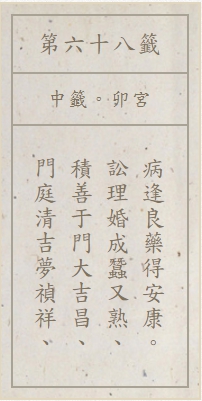 第六十八籤
中籤。卯宮
病逢良藥得安康。
訟理婚成蠶又熟、
積善于門大吉昌、
門庭清吉夢禎祥、